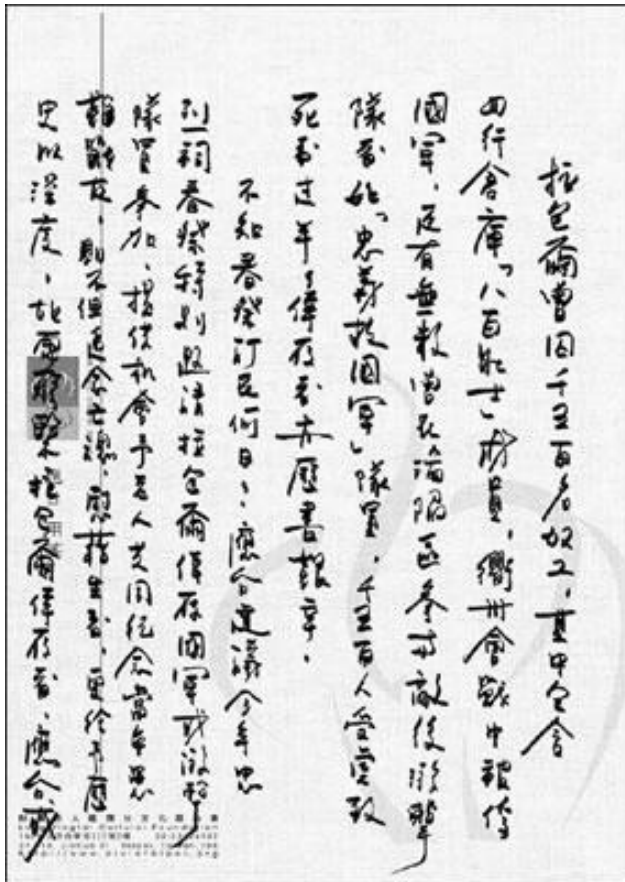 拉包爾曾囚千五百名奴工，其中包含
四行倉庫「八百壯士」成員，衢州會戰中被俘
國軍，還有無數曾在淪陷區參與敵後游擊
隊或如「忠義救國軍」隊員，千五百人受虐致
死者過半，倖存者亦歷盡艱辛。
不知春祭訂在何日，應合建議今年忠
烈祠春祭特別邀請拉包爾倖存國軍或游擊
隊員參加，提供機會予老人共同紀念當年患
難戰友，則不但追念亡魂，慰藉生者，更給予歷
史以深度，
拉包爾倖存者，應合
http://www.